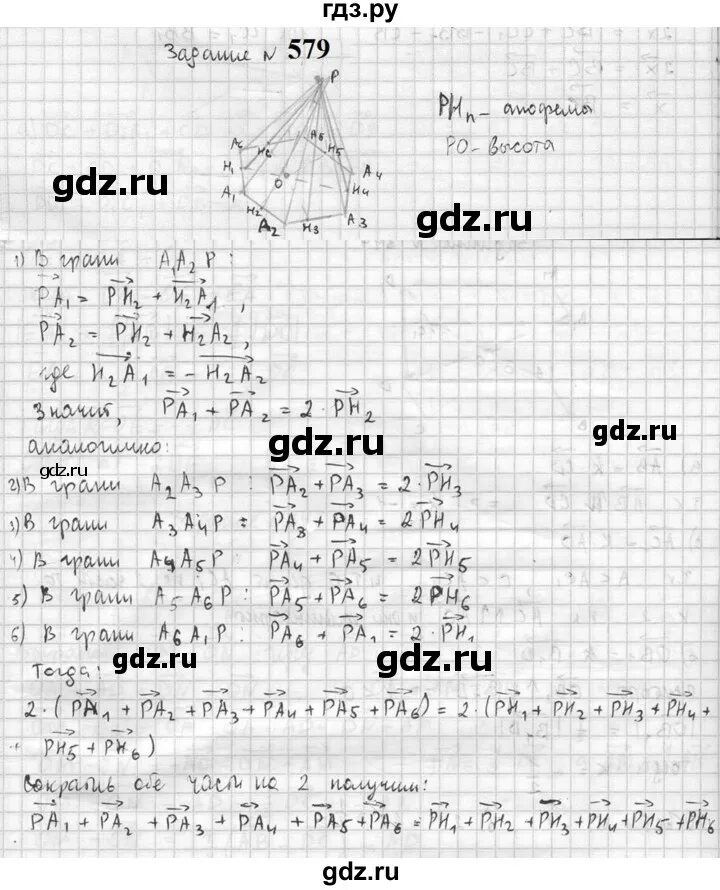 гдз.ру
Задание № 579
P
PHₙ - апофемы
PO - высота
A₆
H₆
H₁
A₁
H₂
A₂
H₃
A₃
H₄
A₄
H₅
A₅
O
gdz.ru
gdz.ru
1) В грани A₁A₂P:
PA₁ = PH₂ + H₂A₁,
PA₂ = PH₂ + H₂A₂,
где H₂A₁ = - H₂A₂
Значит, PA₁ + PA₂ = 2 · PH₂
gdz.ru
gdz.ru
аналогично:
gdz.ru
2) В грани A₂A₃P: PA₂ + PA₃ = 2 · PH₃
3) В грани A₃A₄P: PA₃ + PA₄ = 2PH₄
4) В грани A₄A₅P: PA₄ + PA₅ = 2PH₅
5) В грани A₅A₆P: PA₅ + PA₆ = 2PH₆
6) В грани A₆A₁P: PA₆ + PA₁ = 2 · PH₁
gdz.ru
gdz.ru
Тогда:
2 · (PA₁ + PA₂ + PA₃ + PA₄ + PA₅ + PA₆) = 2 · (PH₁ + PH₂ + PH₃ + PH₄ +
+ PH₅ + PH₆)
Сократив обе части на 2 получим:
PA₁ + PA₂ + PA₃ + PA₄ + PA₅ + PA₆ = PH₁ + PH₂ + PH₃ + PH₄ + PH₅ + PH₆
gdz.ru
gdz.ru